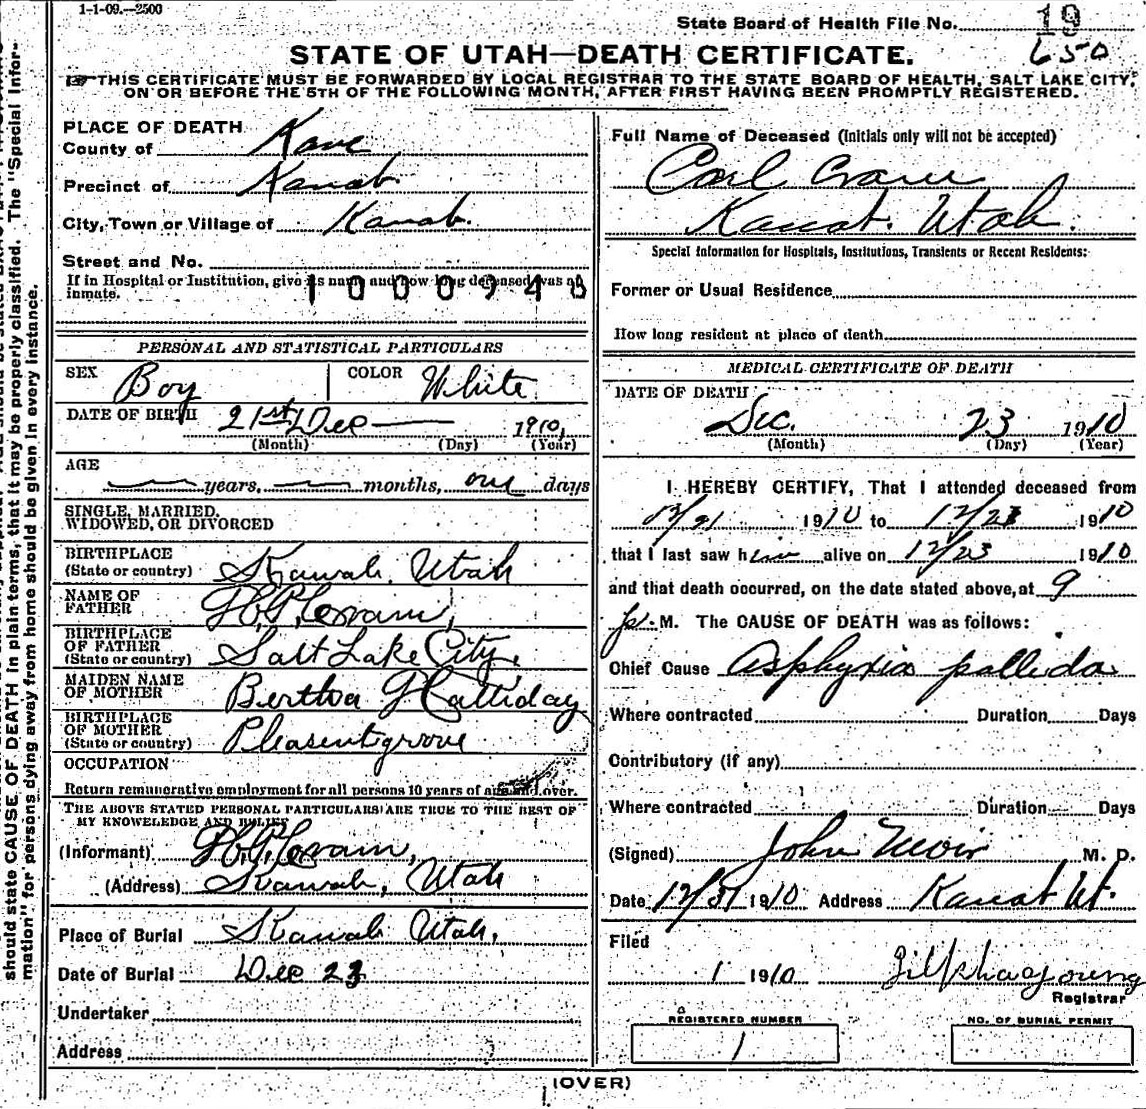 1-1-09.—2500
State Board of Health File No. 19
650
STATE OF UTAH—DEATH CERTIFICATE.
THIS CERTIFICATE MUST BE FORWARDED BY LOCAL REGISTRAR TO THE STATE BOARD OF HEALTH, SALT LAKE CITY,
ON OR BEFORE THE 5TH OF THE FOLLOWING MONTH, AFTER FIRST HAVING BEEN PROMPTLY REGISTERED.
should state CAUSE OF DEATH in plain terms, that it may be properly classified. The "Special Infor-
mation" for persons dying away from home should be given in every instance.
PLACE OF DEATH
County of Kane
Precinct of Kanab
City, Town or Village of Kanab.
Street and No.
If in Hospital or Institution, give its name and how long deceased was an
inmate.
1000943
PERSONAL AND STATISTICAL PARTICULARS
SEX Boy COLOR White
DATE OF BIRTH 21st Dec 1910,
(Month) (Day) (Year)
AGE
years, months, one days
SINGLE, MARRIED,
WIDOWED, OR DIVORCED
BIRTHPLACE
(State or country) Kanab, Utah
NAME OF
FATHER Cram,
BIRTHPLACE
OF FATHER
(State or country) Salt Lake City,
MAIDEN NAME
OF MOTHER Bertha Halliday
BIRTHPLACE
OF MOTHER
(State or country) Pleasentgrove
OCCUPATION
Return remunerative employment for all persons 10 years of age and over.
THE ABOVE STATED PERSONAL PARTICULARS ARE TRUE TO THE BEST OF
MY KNOWLEDGE AND BELIEF
(Informant) Cram,
(Address) Kanab, Utah
Place of Burial Kanab Utah,
Date of Burial Dec 23
Undertaker
Address
Full Name of Deceased (Initials only will not be accepted)
Carl Cram
Kanab. Utah.
Special Information for Hospitals, Institutions, Transients or Recent Residents:
Former or Usual Residence
How long resident at place of death
MEDICAL CERTIFICATE OF DEATH
DATE OF DEATH
Dec. 23 1910
(Month) (Day) (Year)
I HEREBY CERTIFY, That I attended deceased from
12/21 1910 to 12/23 1910
that I last saw him alive on 12/23 1910
and that death occurred, on the date stated above, at 9
p. M. The CAUSE OF DEATH was as follows:
Chief Cause Asphyxia pallida
Where contracted Duration Days
Contributory (if any)
Where contracted Duration Days
(Signed) John M. D.
Date 12/31 1910 Address Kanab Ut.
Filed
1 1910 Young
Registrar
REGISTERED NUMBER
1
NO. OF BURIAL PERMIT
(OVER)